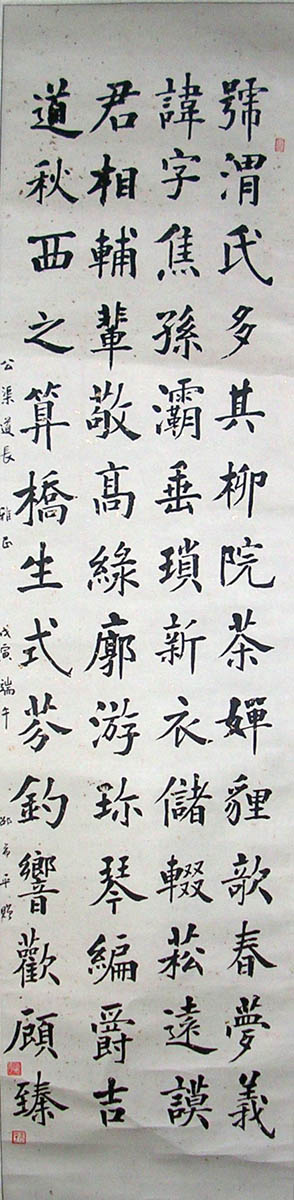 號渭氏多其柳院茶嬋貍歌春夢義
諱字焦孫灞垂瑣新衣儲輟菘遠謨
君相輔輩敬高綠廓游珎琴編爵吉
道秋西之算橋生式芬釣響歡顧臻
公渠道長 雅正 戊寅端午